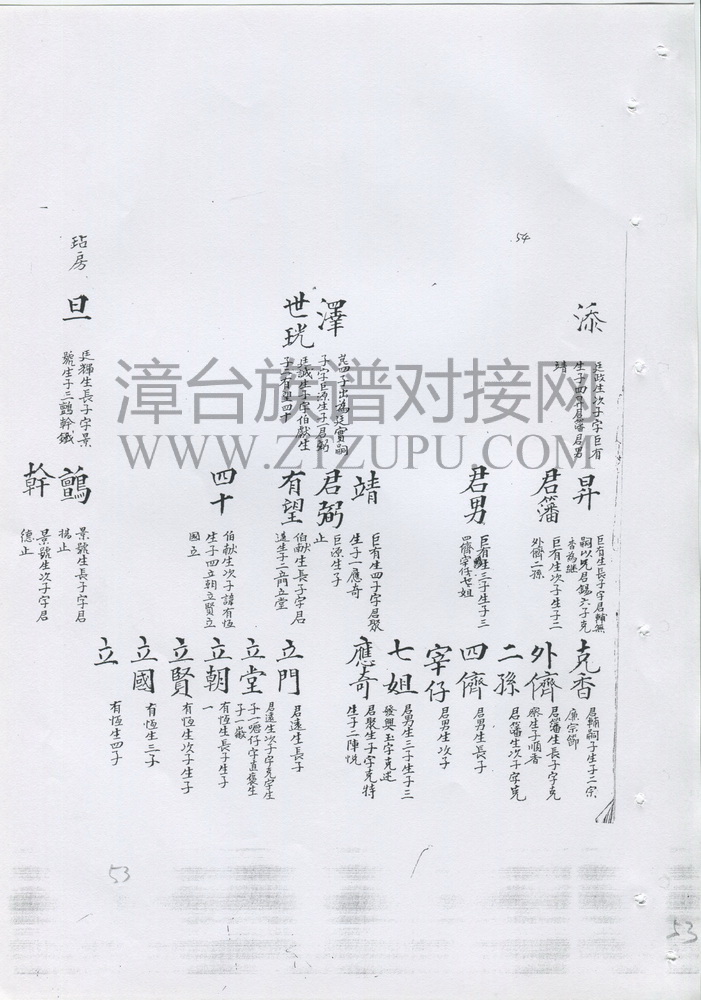 54
添
廷政生次子字巨有
生子四昇君籓君男
靖
澤
世珖
廷誠生子字伯獻生
子二有望四十
玷房
旦
廷輝生長子字景
號生子三鷧幹鐵
昇
巨有生長子字君輔無
嗣以兄君錫六子克
香為継
君籓
巨有生次子生子二
外儕二孫
君男
巨有生三子生子三
四儕宰仔七姐
靖
巨有生四子字君聚
生子一應奇
君弼
巨源生子
止
有望
伯献生長子字君
遠生子二立門立堂
四十
伯献生次子諱有恆
生子四立朝立賢立
國立
景號生長子字君
揚止
幹
景號生次子字君
德止
克香
君輔嗣子生子二宗
廉宗節
外儕
君籓生長子字克
察生子順香
二孫
君籓生次子字克
四儕
君男生長子
宰仔
君男生次子
七姐
君男生三子生子三
發興玉字克述
應奇
君聚生子字克特
生子二陣悦
立門
君遠生長子
立堂
君遠生次子字克宇生
立朝
有恆生長子生子
一
立賢
有恆生次子生子
立國
有恆生三子
立
有恆生四子
漳台族谱对接网
WWW.ZTZUPU.COM
53
53